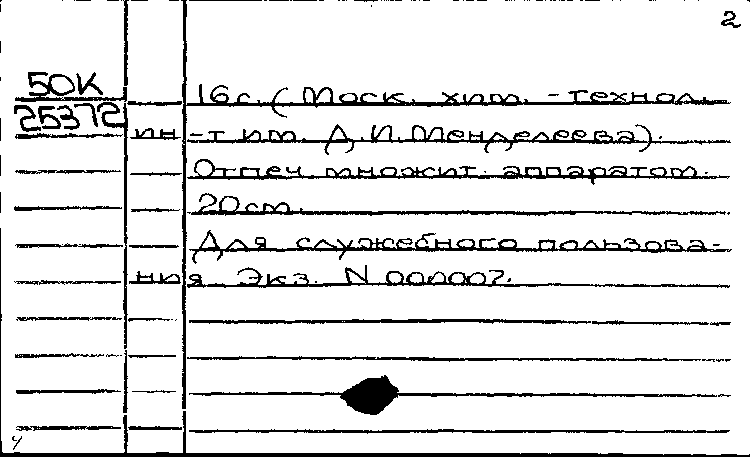 2
50К
25372
16с. (Моск. хим. - технол.
ин-т им. Д.И.Менделеева).
Отпеч. множит. аппаратом.
20см.
Для служебного пользова-
ния Экз. N 000007.